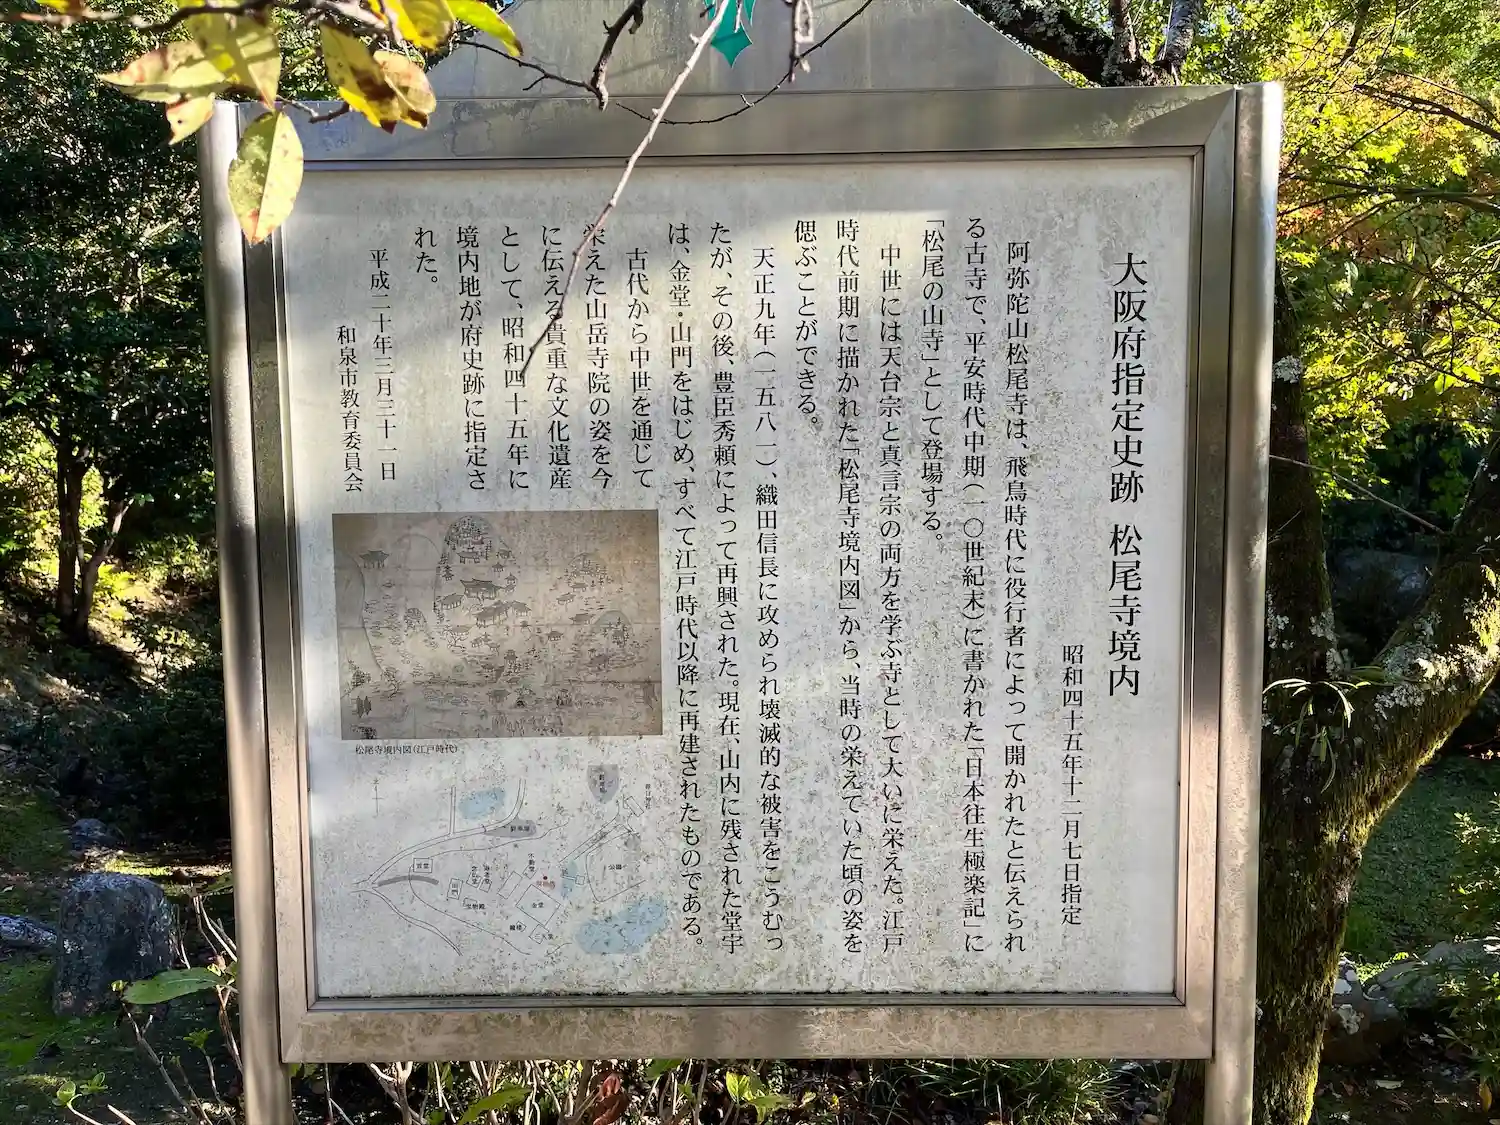 大阪府指定史跡 松尾寺境内
昭和四十五年十二月七日指定
阿弥陀山松尾寺は、飛鳥時代に役行者によって開かれたと伝えられ
る古寺で、平安時代中期(一〇世紀末)に書かれた「日本往生極楽記」に
「松尾の山寺」として登場する。
中世には天台宗と真言宗の両方を学ぶ寺として大いに栄えた。江戸
時代前期に描かれた「松尾寺境内図」から、当時の栄えていた頃の姿を
偲ぶことができる。
天正九年(一五八一)、織田信長に攻められ壊滅的な被害をこうむっ
たが、その後、豊臣秀頼によって再興された。現在、山内に残された堂宇
は、金堂・山門をはじめ、すべて江戸時代以降に再建されたものである。
古代から中世を通じて
栄えた山岳寺院の姿を今
に伝える貴重な文化遺産
として、昭和四十五年に
境内地が府史跡に指定さ
れた。
平成二十年三月三十一日
和泉市教育委員会
松尾寺境内図(江戸時代)
駐車場
不動堂
宝物殿
金堂
公園